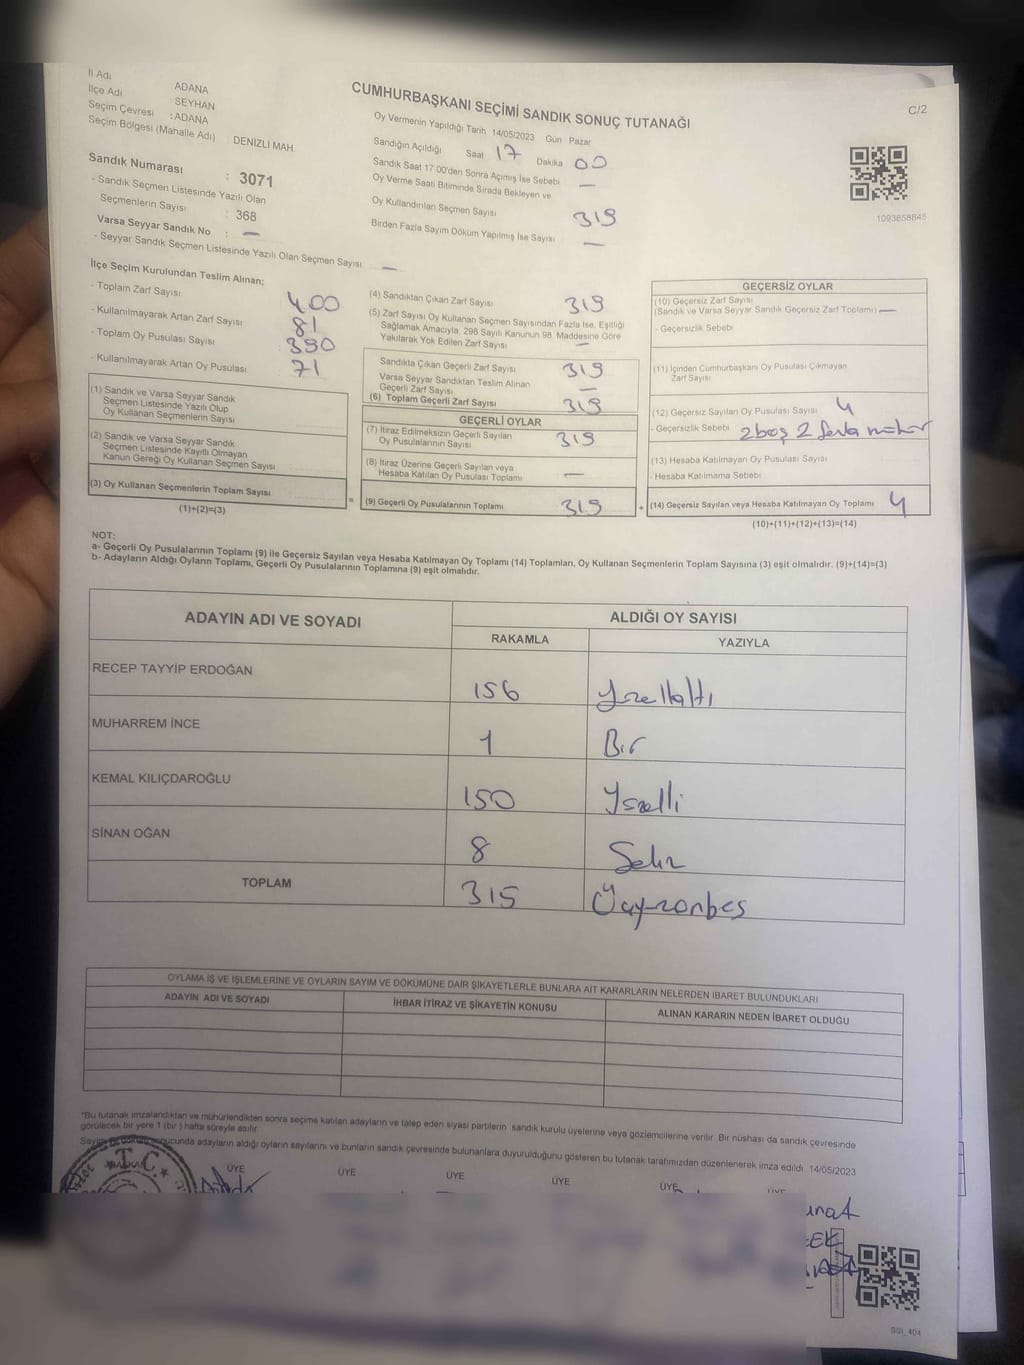 İl Adı ADANA
İlçe Adı SEYHAN
Seçim Çevresi : ADANA
Seçim Bölgesi (Mahalle Adı) DENİZLİ MAH.
Sandık Numarası : 3071
- Sandık Seçmen Listesinde Yazılı Olan
Seçmenlerin Sayısı : 368
Varsa Seyyar Sandık No : —
- Seyyar Sandık Seçmen Listesinde Yazılı Olan Seçmen Sayısı —
CUMHURBAŞKANI SEÇİMİ SANDIK SONUÇ TUTANAĞI
C/2
Oy Vermenin Yapıldığı Tarih 14/05/2023 Gün Pazar
Sandığın Açıldığı Saat 17 Dakika 00
Sandık Saat 17 00'den Sonra Açımış İse Sebebi —
Oy Verme Saati Bitiminde Sırada Bekleyen ve
Oy Kullandırılan Seçmen Sayısı 319
Birden Fazla Sayım Döküm Yapılmış İse Sayısı —
1093858845
İlçe Seçim Kurulundan Teslim Alınan;
- Toplam Zarf Sayısı 400
- Kullanılmayarak Artan Zarf Sayısı 81
- Toplam Oy Pusulası Sayısı 390
- Kullanılmayarak Artan Oy Pusulası 71
(1) Sandık ve Varsa Seyyar Sandık
Seçmen Listesinde Yazılı Olup
Oy Kullanan Seçmenlerin Sayısı
(2) Sandık ve Varsa Seyyar Sandık
Seçmen Listesinde Kayıtlı Olmayan
Kanun Gereği Oy Kullanan Seçmen Sayısı
(3) Oy Kullanan Seçmenlerin Toplam Sayısı
(1)+(2)=(3)
=
(4) Sandıktan Çıkan Zarf Sayısı 319
(5) Zarf Sayısı Oy Kullanan Seçmen Sayısından Fazla İse, Eşitliği
Sağlamak Amacıyla, 298 Sayılı Kanunun 98. Maddesine Göre
Yakılarak Yok Edilen Zarf Sayısı —
Sandıkta Çıkan Geçerli Zarf Sayısı 319
Varsa Seyyar Sandıktan Teslim Alınan
Geçerli Zarf Sayısı —
(6) Toplam Geçerli Zarf Sayısı 319
GEÇERLİ OYLAR
(7) İtiraz Edilmeksizin Geçerli Sayılan
Oy Pusulalarının Sayısı 319
(8) İtiraz Üzerine Geçerli Sayılan veya
Hesaba Katılan Oy Pusulası Toplamı —
(9) Geçerli Oy Pusulalarının Toplamı 319
+
GEÇERSİZ OYLAR
(10) Geçersiz Zarf Sayısı
(Sandık ve Varsa Seyyar Sandık Geçersiz Zarf Toplamı) —
- Geçersizlik Sebebi
(11) İçinden Cumhurbaşkanı Oy Pusulası Çıkmayan
Zarf Sayısı
(12) Geçersiz Sayılan Oy Pusulası Sayısı 4
- Geçersizlik Sebebi 2 boş 2 fazla mühür
(13) Hesaba Katılmayan Oy Pusulası Sayısı
- Hesaba Katılmama Sebebi
(14) Geçersiz Sayılan veya Hesaba Katılmayan Oy Toplamı 4
(10)+(11)+(12)+(13)=(14)
NOT:
a- Geçerli Oy Pusulalarının Toplamı (9) ile Geçersiz Sayılan veya Hesaba Katılmayan Oy Toplamı (14) Toplamları, Oy Kullanan Seçmenlerin Toplam Sayısına (3) eşit olmalıdır. (9)+(14)=(3)
b- Adayların Aldığı Oyların Toplamı, Geçerli Oy Pusulalarının Toplamına (9) eşit olmalıdır.
ADAYIN ADI VE SOYADI ALDIĞI OY SAYISI
RAKAMLA YAZIYLA
RECEP TAYYİP ERDOĞAN 156 Yüzellialtı
MUHARREM İNCE 1 Bir
KEMAL KILIÇDAROĞLU 150 Yüzelli
SİNAN OĞAN 8 Sekiz
TOPLAM 315 Üçyüzonbeş
OYLAMA İŞ VE İŞLEMLERİNE VE OYLARIN SAYIM VE DÖKÜMÜNE DAİR ŞİKAYETLERLE BUNLARA AİT KARARLARIN NELERDEN İBARET BULUNDUKLARI
ADAYIN ADI VE SOYADI İHBAR İTİRAZ VE ŞİKAYETİN KONUSU ALINAN KARARIN NEDEN İBARET OLDUĞU
*Bu tutanak imzalandıktan ve mühürlendikten sonra seçime katılan adayların ve talep eden siyasi partilerin sandık kurulu üyelerine veya gözlemcilerine verilir. Bir nüshası da sandık çevresinde
görülecek bir yere 1 (bir) hafta süreyle asılır.
Sayım sonucunda adayların aldığı oyların sayılarını ve bunların sandık çevresinde bulunanlara duyurulduğunu gösteren bu tutanak tarafımızdan düzenlenerek imza edildi. 14/05/2023
T.C.
ÜYE ÜYE ÜYE ÜYE ÜYE